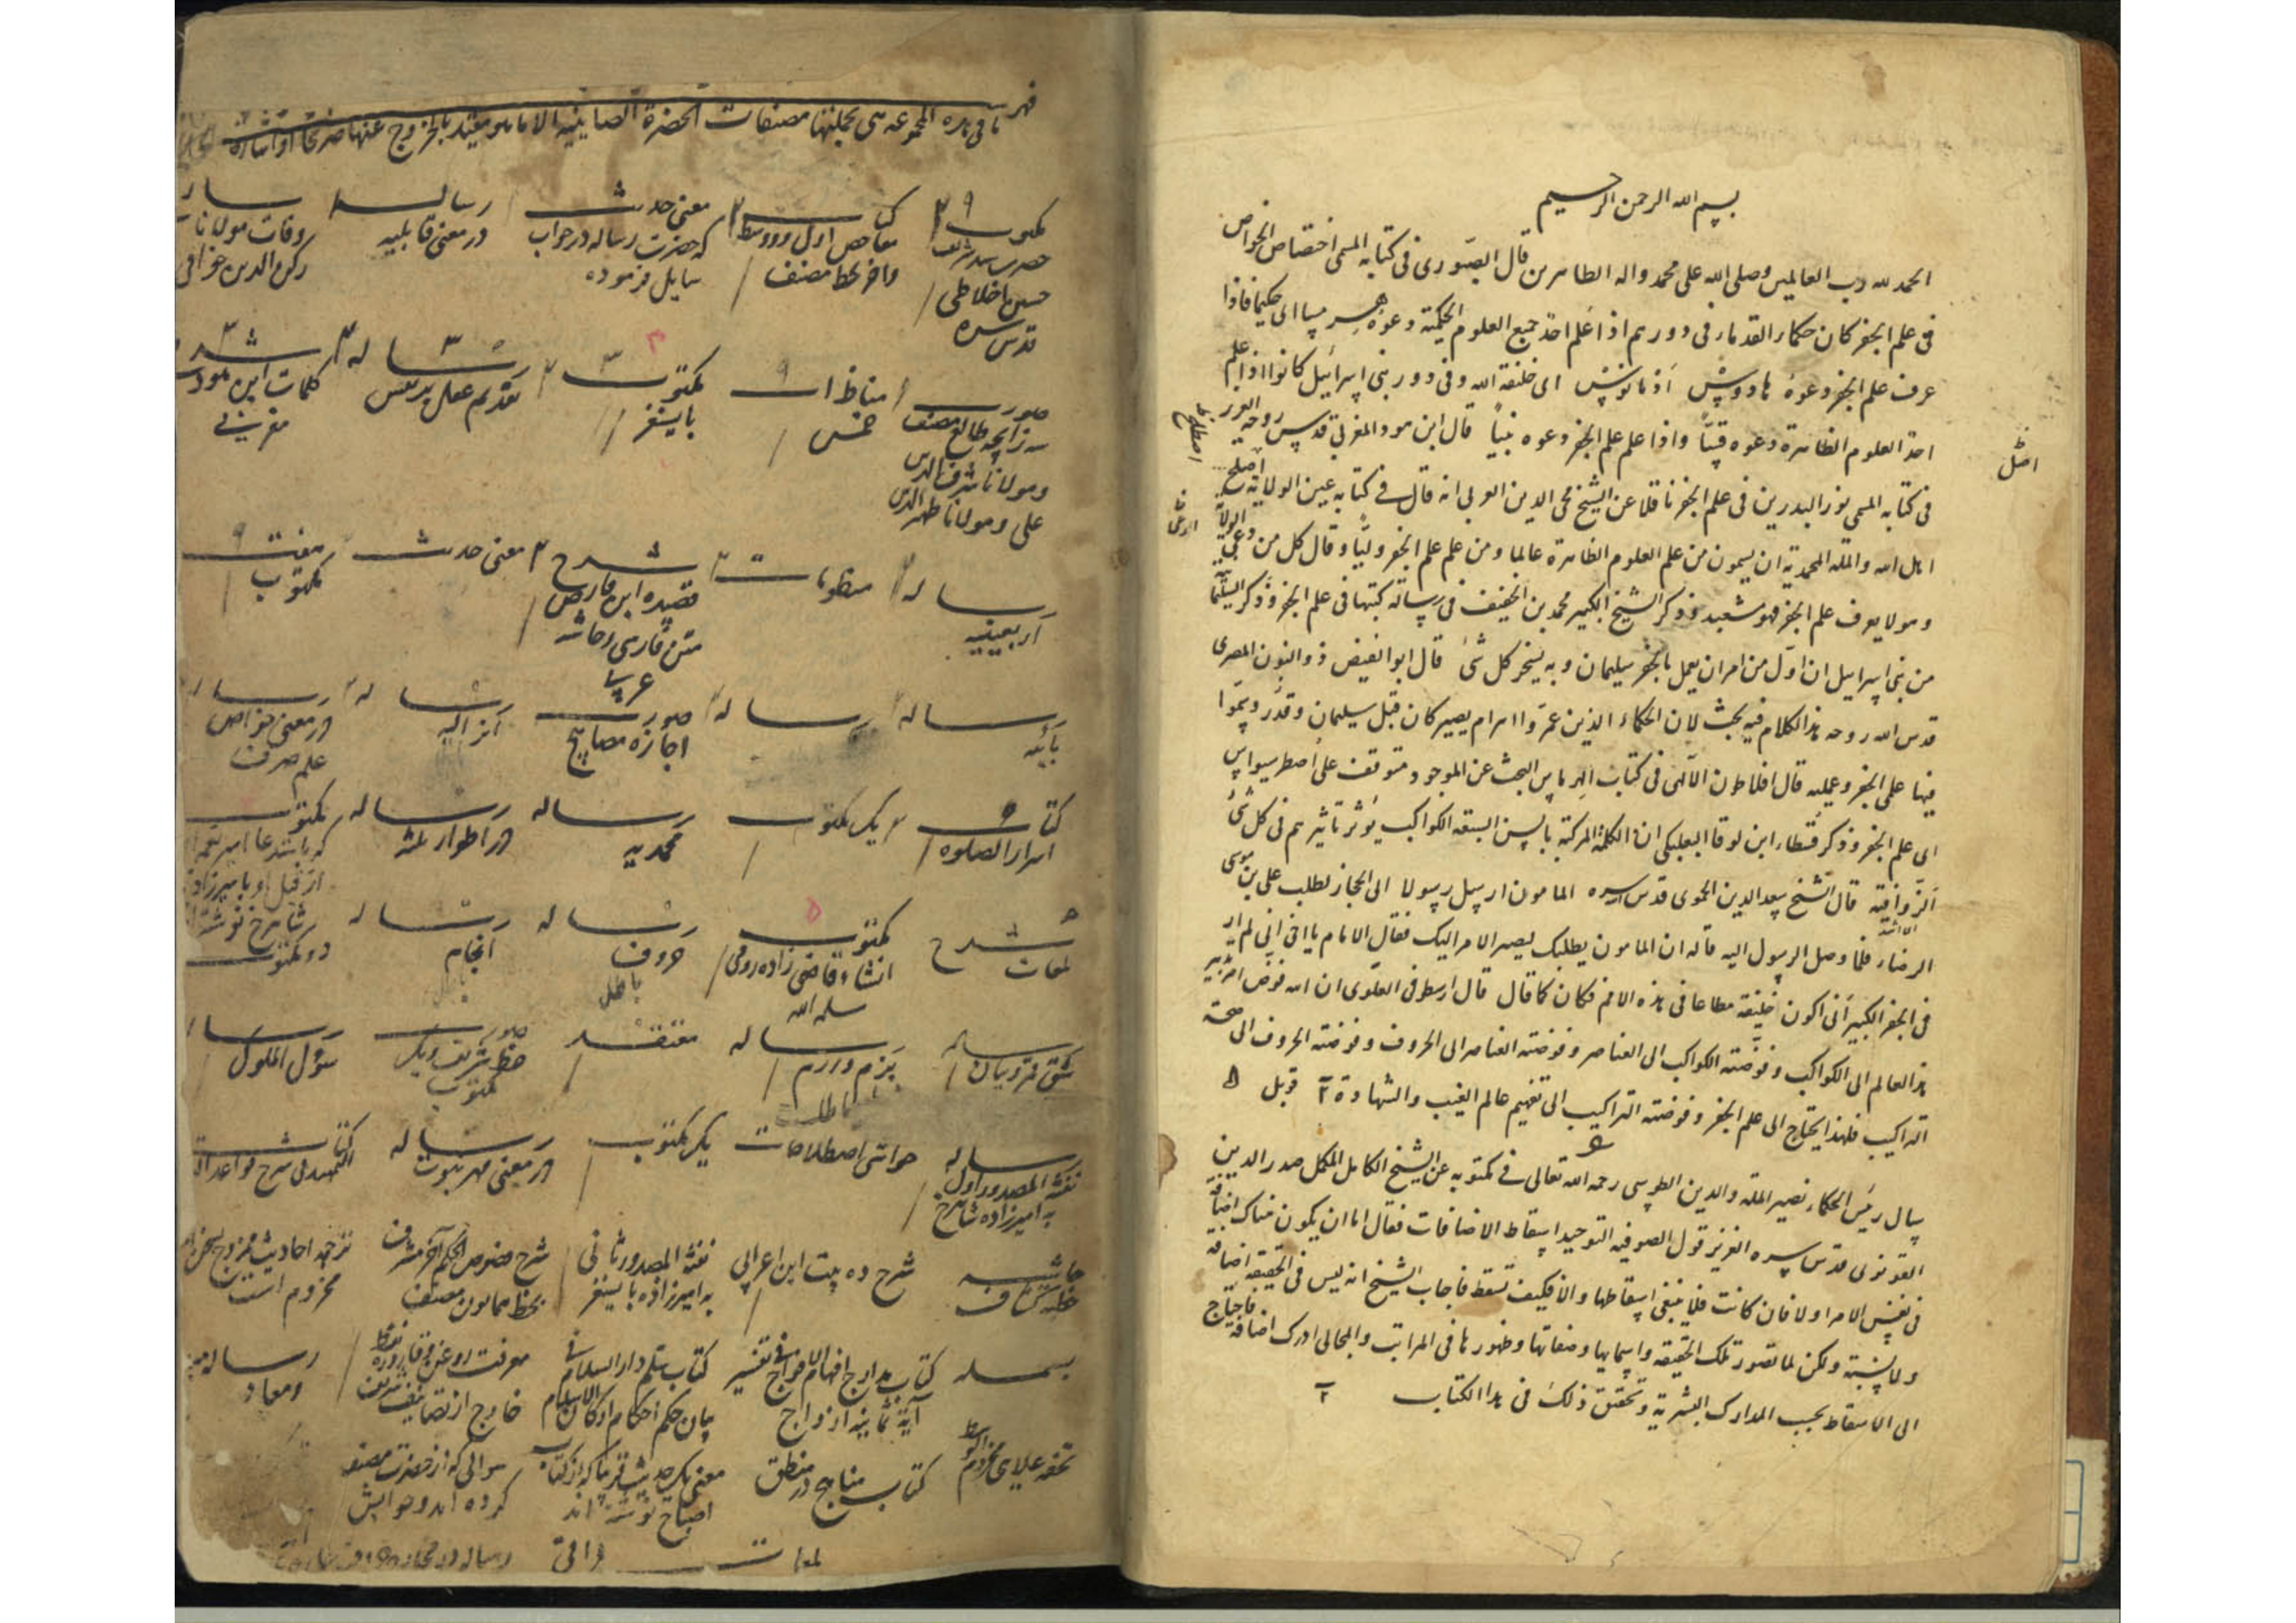 بسم الله الرحمن الرحيم
الحمد لله رب العالمين وصلى الله على محمد واله الطاهرين قال الصوري فى كتابه المسمى اختصاص الخواص
فى علم الجفر كان حكماء القدماء فى دورهم اذا علم احد جميع العلوم الحكمية دعوه هرمسا اى حكيما فاذا
عرف علم الجفر دعوه هادوش اذمانوش اى خليفة الله وفى دور بنى اسرائيل كانوا اذا علم
احد العلوم الظاهرة دعوه قسيا واذا علم علم الجفر دعوه نبيا قال ابن هود المغربى قدس روحه العزيز
فى كتابه المسمى نور البدرين فى علم الجفر ناقلا عن الشيخ محى الدين العربى انه قال فى كتابه عين الولاية اصطلح
اهل الله والملة المحمدية ان يسمون من علم العلوم الظاهرة عالما ومن علم علم الجفر وليا وقال كل من دعى الولاية
وهو لا يعرف علم الجفر فهو مشعبد وذكر الشيخ الكبير محمد بن الخفيف فى رسالة كتبها فى علم الجفر وذكر السلما
من بنى اسرائيل ان اول من امر ان يعمل بالجفر سليمان وبه يسخر كل شئ قال ابو الفيض ذو النون المصرى
قدس الله روحه هذا الكلام فيه بحث لان الحكماء الذين عمروا اهرام مصر كان قبل سليمان وقد رقموا
فيها علمى الجفر وعمليه قال افلاطون الالهى فى كتاب الهرماس البحث عن الموجود متوقف على اصطرسيواس
اى علم الجفر وذكر قسطاء ابن لوقا البعلبكى ان الكلمة المركبة بالسن السبعة الكواكب يؤثر تاثيرهم فى كل شئ
الزواقية قال الشيخ سعد الدين الحموى قدس سره المامون ارسل رسولا الى الحجاز لطلب على بن موسى
الرضاء فلما وصل الرسول اليه قال له ان المامون يطلبك ليصير الامر اليك فقال الامام يا اخى انى لم ار
فى الجفر الكبير انى اكون خليفة مطاعا فى هذه الامم فكان كما قال قال ارسطو فى العلوى ان الله فوض امر تدبير
هذا العالم الى الكواكب وفوضته الكواكب الى العناصر وفوضته العناصر الى الحروف وفوضته الحروف الى صحة
التراكيب فلهذا يحتاج الى علم الجفر وفوضته التراكيب الى تفهيم عالم الغيب والشهادة قوبل
سال رئيس الحكماء نصير الملة والدين الطوسى رحمه الله تعالى فى مكتوبه عن الشيخ الكامل المكمل صدر الدين
القونوى قدس سره العزيز قول الصوفيه التوحيد اسقاط الاضافات فقال اما ان يكون هناك اضافة
فى نفس الامر اولا فان كانت فلا ينبغى اسقاطها والا فكيف تسقط فاجاب الشيخ انه ليس فى الحقيقه اضافة
ولا نسبة ولكن لما تصور تلك الحقيقه واسمايها وصفاتها وظهورها فى المراتب والمجالى ادرك اضافة فاحتاج
الى الاسقاط بحسب المدارك البشرية وتحقق ذلك فى هذا الكتاب
فهر ما فى هذه المجموعه هى بجملتها مصنفات الحضرة الصاينيه الا ما هو مقيد بالخروج عنها صريحا او اشارة
مكتوب حضرت سيد شريف حسين اخلاطى قدس سره
كتاب مفاحص اول ودوم وسط واخر بخط مصنف
معنى حديث كه حضرت رساله در جواب سايل فرموده
رساله در معنى قابليه
وفات مولانا ركن الدين خوافى
صورت زايچه طالع مصنف ومولانا شرف الدين على ومولانا ظهير الدين
مناظرات خمس
مكتوب بايسنغر
رساله تقديم عقل بر نفس
شرح كلمات ابن هود مغربى
رساله اربعينيه
منظومات
شرح قصيده ابن فارض متن فارسى وحاشيه عربى
معنى حديث
هفت مكتوب
رساله بائيه
رساله
رساله
صورت اجازه مصابيح
رساله انزاليه
رساله در معنى خواص علم صرف
كتاب اسرار الصلوة
يك مكتوب
رساله محمديه
رساله در اطوار ثلثه
مكتوب
شرح لمعات
مكتوب انشاء قاضى زاده رومى سلمه الله
رساله حروف باطل
رساله انجام
دو مكتوب
رساله شق قمر وبيان
رساله بزم ورزم
معتقد
صورت خط شريف ويك مكتوب
رساله سؤال الملوك
رساله نفثة المصدور اول به اميرزاده شاهرخ
حواشى اصطلاحات
يك مكتوب
رساله در معنى مهر نبوت
كتاب التمهيد فى شرح قواعد
حاشيه خطبه كشاف
شرح ده بيت ابن اعرابى
نفثة المصدور ثانى به اميرزاده بايسنغر
شرح فصوص الحكم بخط همايون مصنف
ترجمه احاديث
بسمله
كتاب مدارج افهام الافواج فى تفسير آية ثمانية ازواج
كتاب سلم دار السلام فى بيان حكم احكام اركان الاسلام
معرفت
خارج از تصانيف
رساله مبدأ ومعاد
تحفه علائى
كتاب مناهج در منطق
معنى يك حديث
سوالى كه از حضرت مصنف كرده اند وجوابش
لمعات عراقى